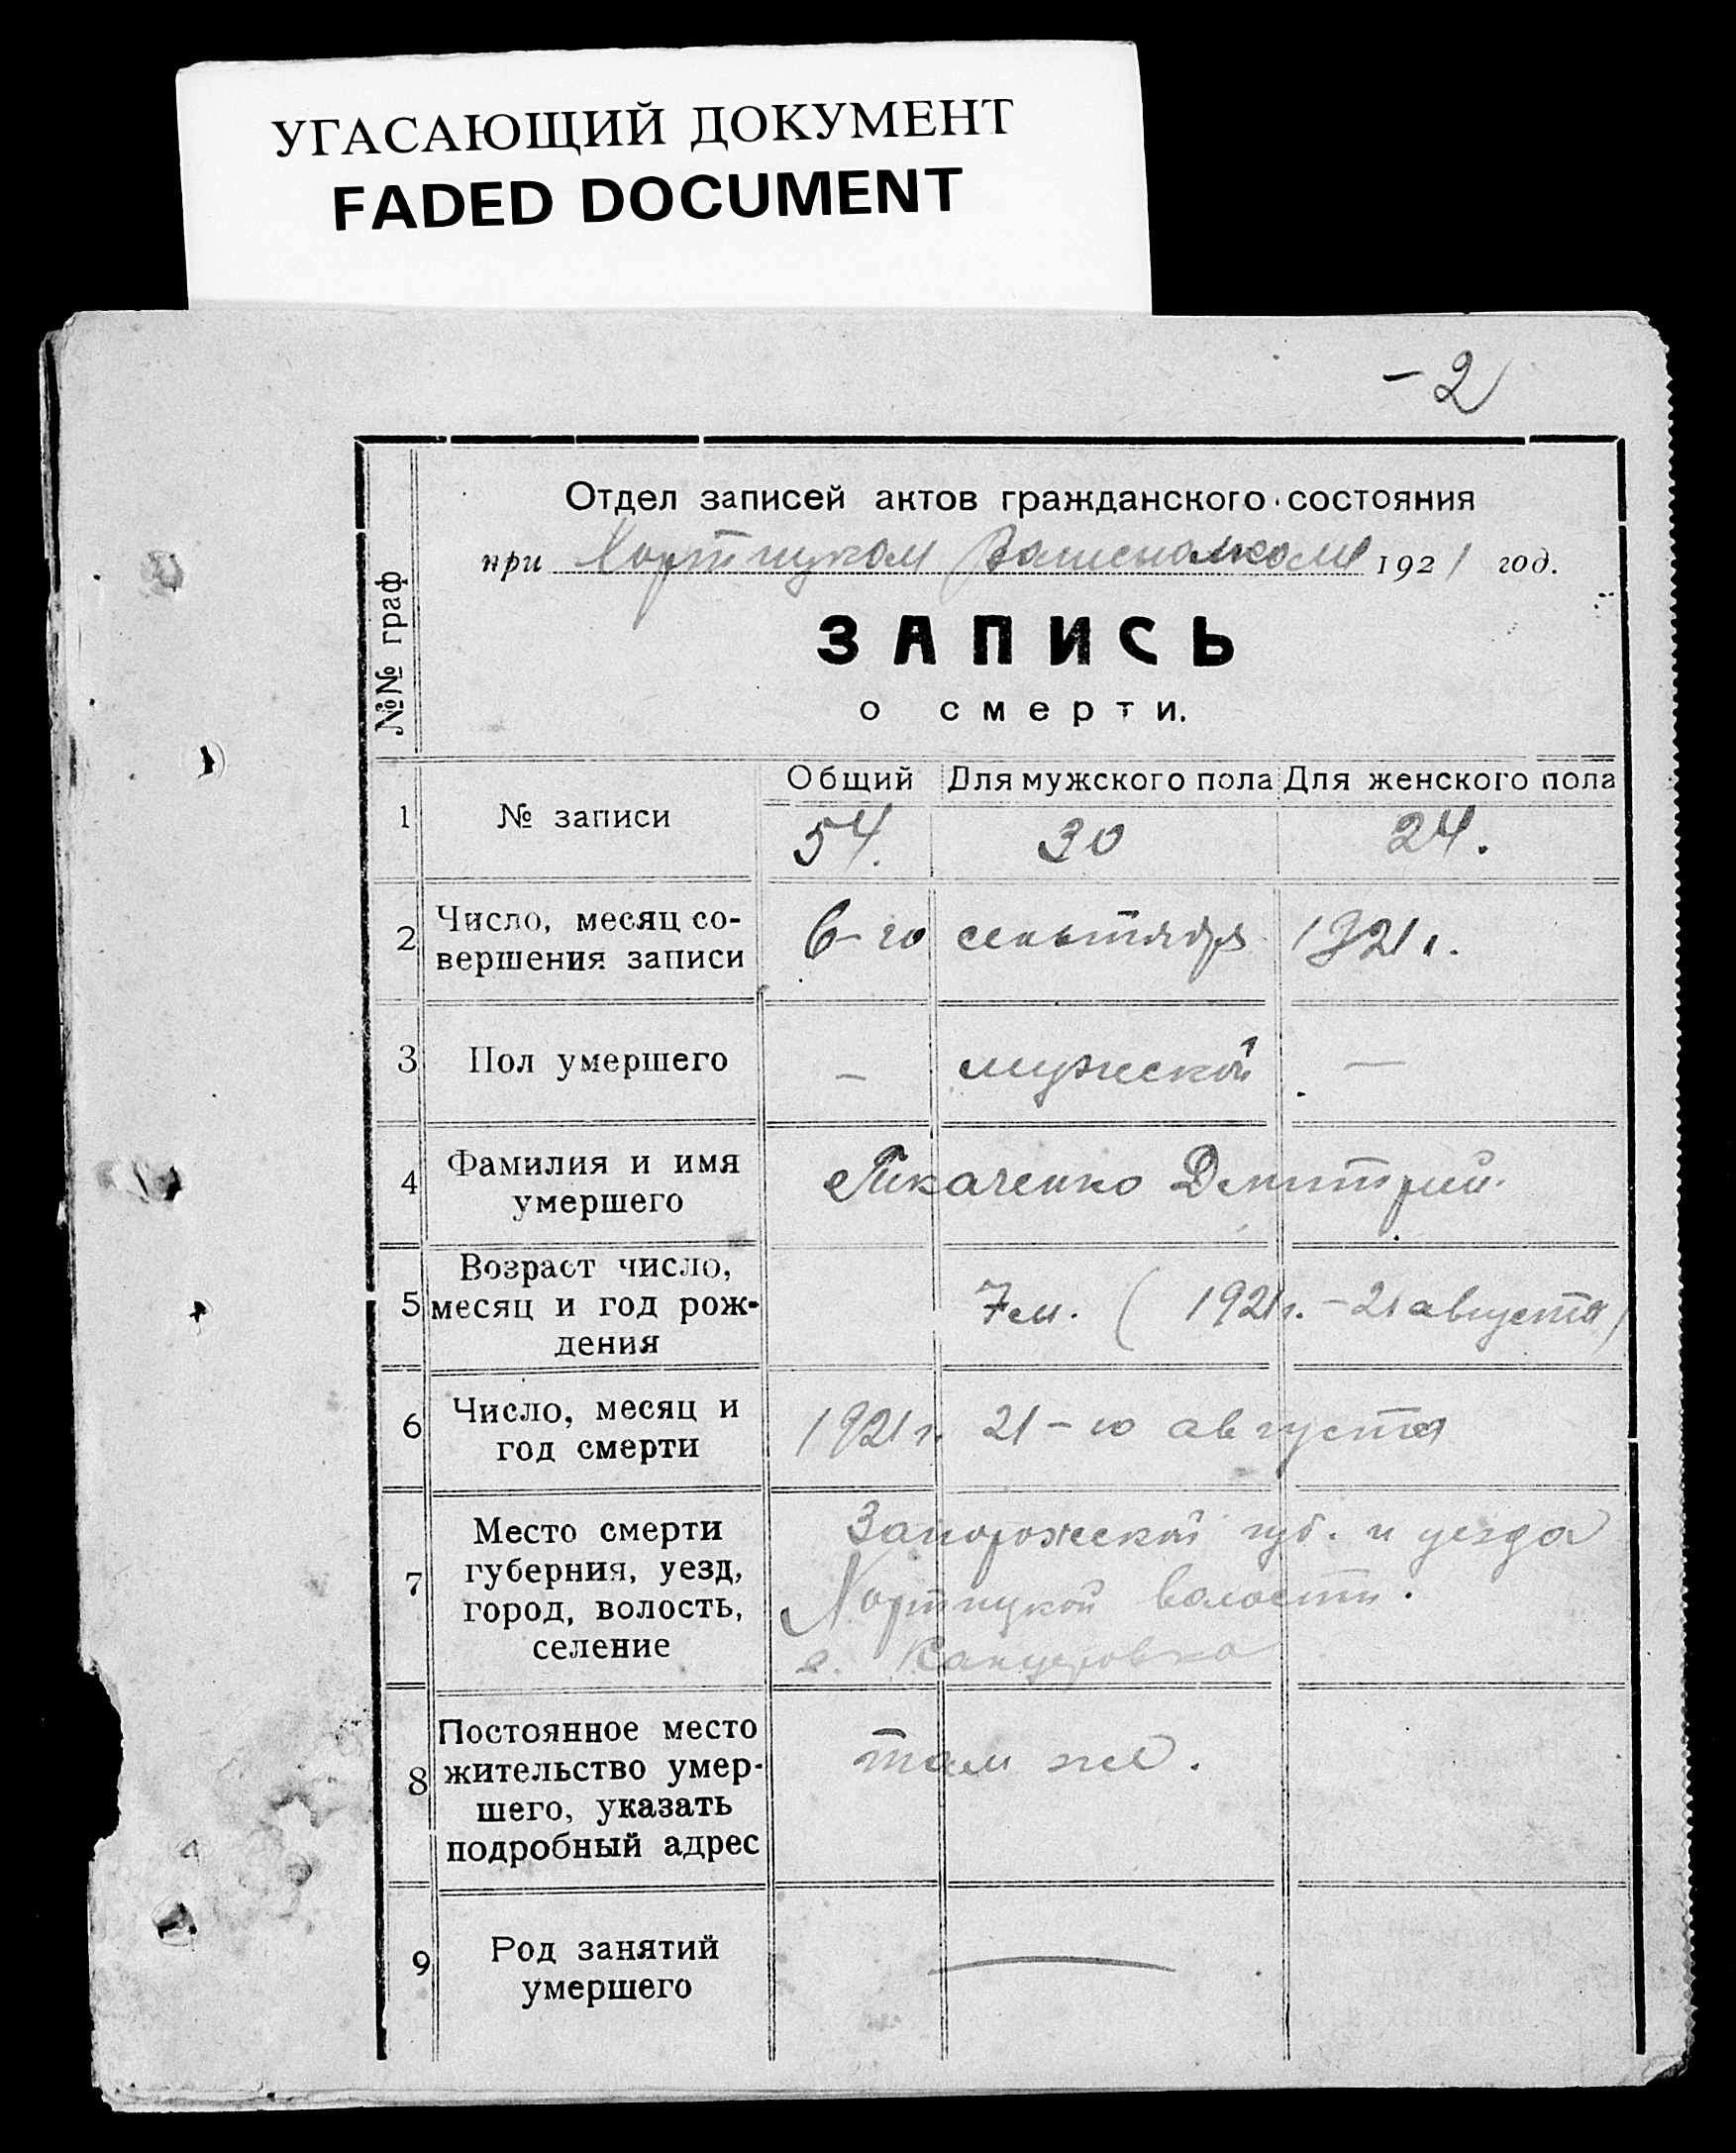 УГАСАЮЩИЙ ДОКУМЕНТ
FADED DOCUMENT
-2
№№ граф
Отдел записей актов гражданского состояния
при Хортицком 1921 год.
ЗАПИСЬ
о смерти.
Общий Для мужского пола Для женского пола
1 № записи 54. 30 24.
2 Число, месяц со-
вершения записи 6-го сентября 1921 г.
3 Пол умершего - мужской —
4 Фамилия и имя
умершего Ткаченко Дмитрий.
5 Возраст число,
месяц и год рож-
дения 7 м. ( 1921 г. - 21 августа )
6 Число, месяц и
год смерти 1921 г. 21-го августа
7 Место смерти
губерния, уезд,
город, волость,
селение
Запорожской губ. и уезда
Хортицкой волости.
с. Канцеровка
8 Постоянное место
жительство умер-
шего, указать
подробный адрес
там же.
9 Род занятий
умершего —